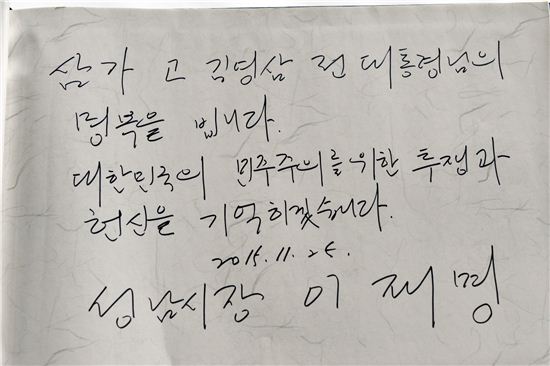 삼가 고 김영삼 전 대통령님의
명복을 빕니다.
대한민국의 민주주의를 위한 투쟁과
헌신을 기억하겠습니다.
2015. 11. 25.
성남시장 이 재 명